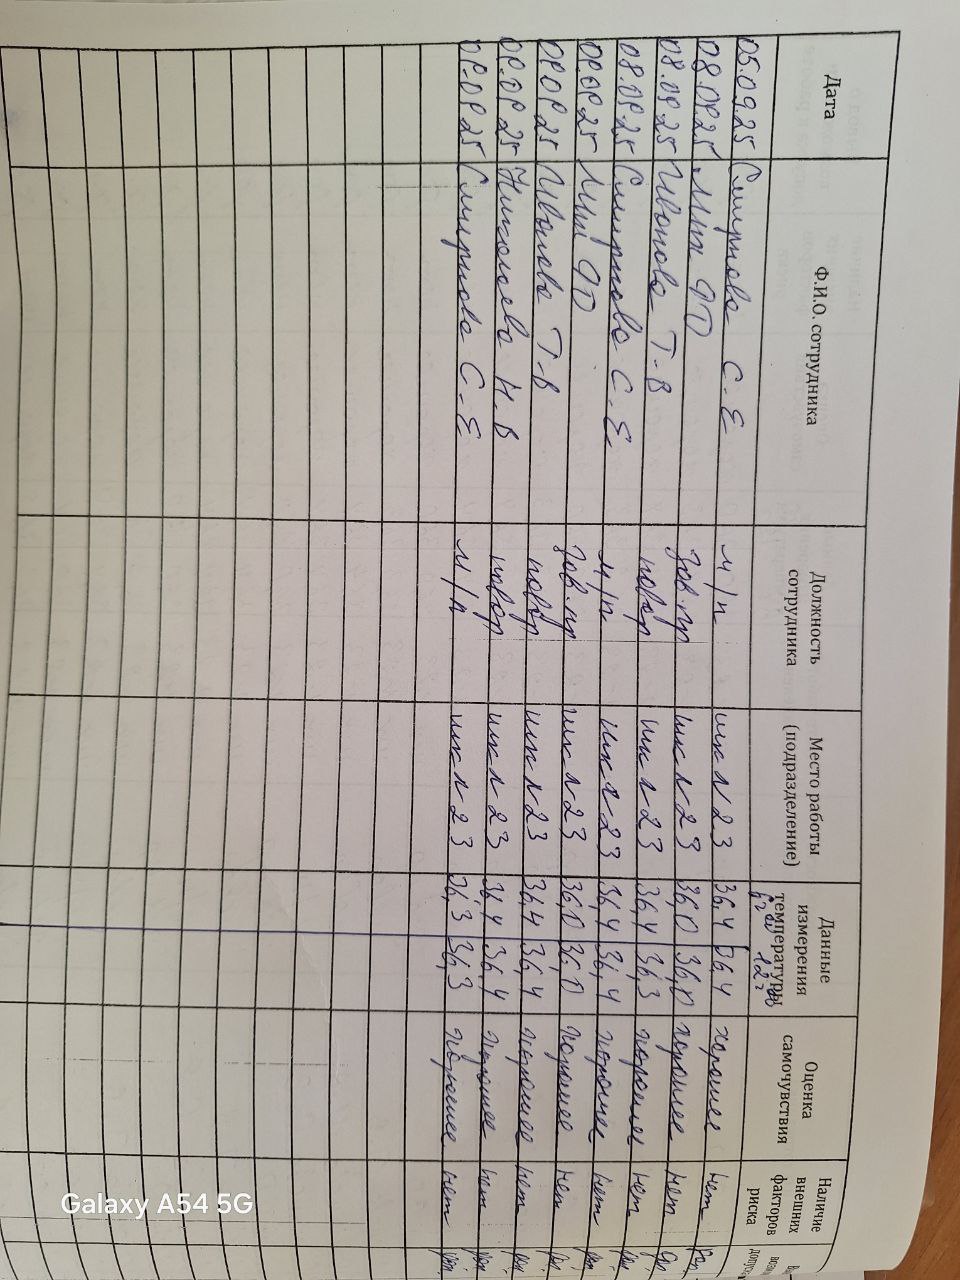 Дата Ф.И.О. сотрудника Должность сотрудника Место работы (подразделение) Данные измерения температуры Оценка самочувствия Наличие внешних факторов риска
05.09.25 Смирнова С.Е м/п шк n 23 36,4 36,4 хорошее нет
08.09.25 ЯД Зав.пр шк n 23 36,0 36,0 хорошее нет
08.09.25 Иванова Т.В повар шк n 23 36,4 36,3 хорошее нет
08.09.25 Смирнова С.Е м/п шк n 23 36,4 36,4 хорошее нет
09.09.25 ЯД Зав.пр шк n 23 36,0 36,0 хорошее нет
09.09.25 Иванова Т.В повар шк n 23 36,4 36,4 хорошее нет
09.09.25 Николаева Н.В повар шк n 23 36,4 36,4 хорошее нет
09.09.25 Смирнова С.Е м/п шк n 23 36,3 36,3 хорошее нет
Galaxy A54 5G